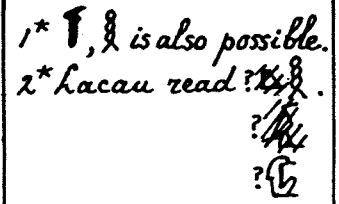 1* , 𓎛 is also possible.
2* Lacau read ? 𓎛 .
?
?